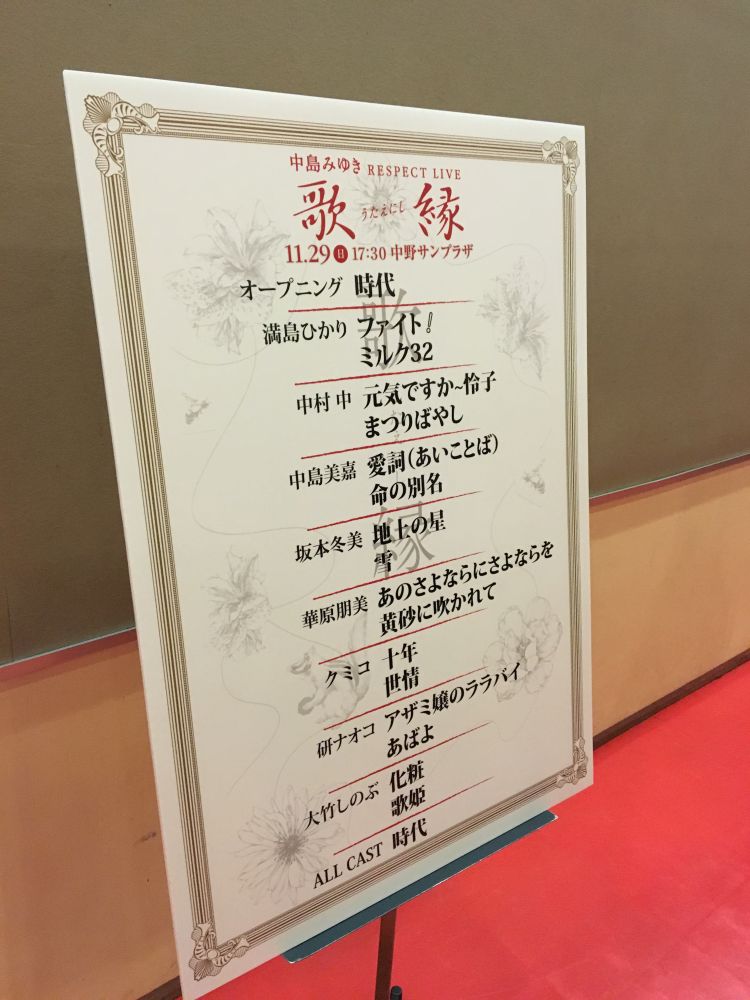 中島みゆき RESPECT LIVE
歌 うたえにし 縁
11.29 日 17:30 中野サンプラザ
オープニング 時代
満島ひかり ファイト!
ミルク32
中村 中 元気ですか~怜子
まつりばやし
中島美嘉 愛詞(あいことば)
命の別名
坂本冬美 地上の星
雪
華原朋美 あのさよならにさよならを
黄砂に吹かれて
クミコ 十年
世情
研ナオコ アザミ嬢のララバイ
あばよ
大竹しのぶ 化粧
歌姫
ALL CAST 時代
歌
縁